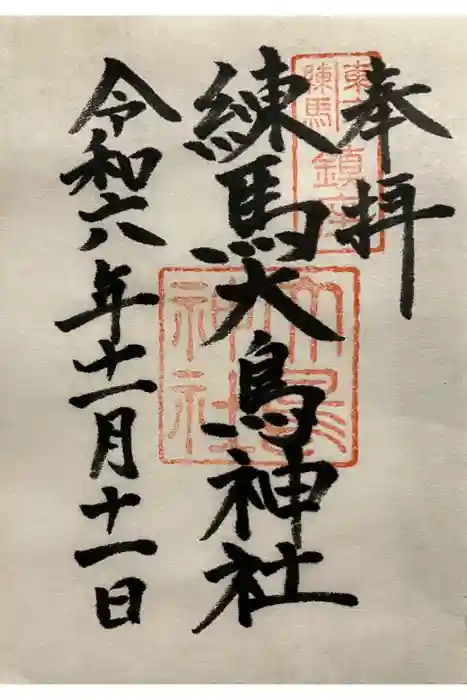 奉拝
練馬大鳥神社
令和六年十一月十一日
東京
練馬
鎮座
大鳥
神社